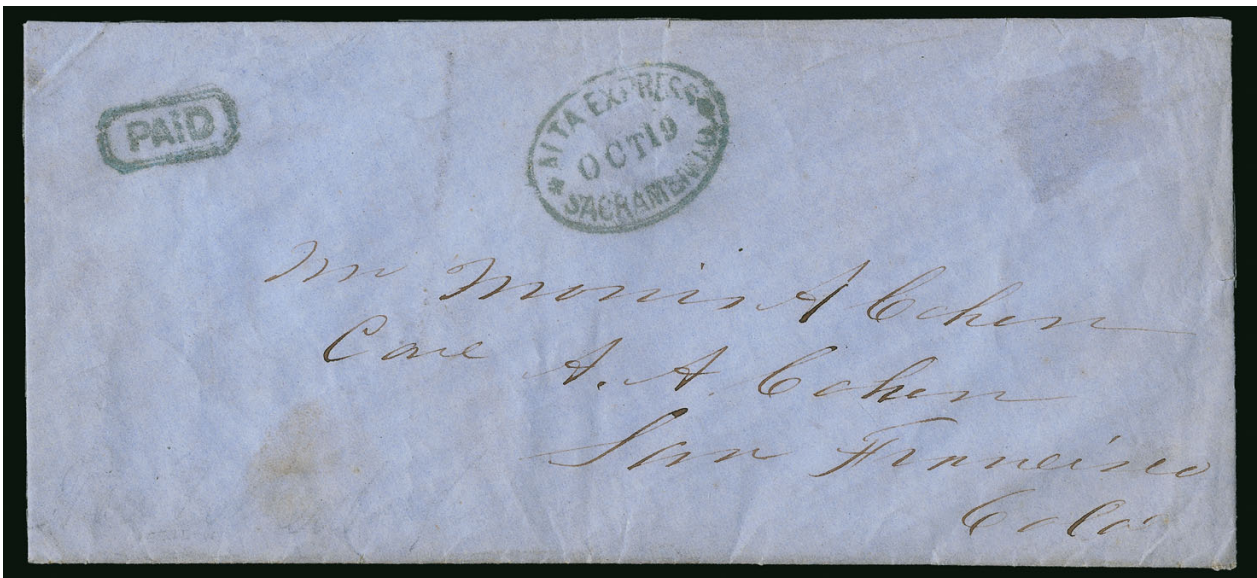 PAID
ALTA EXPRESS
OCT 19
SACRAMENTO
Mr Morris A Cohen
Care A. A. Cohen
San Francisco
Cala